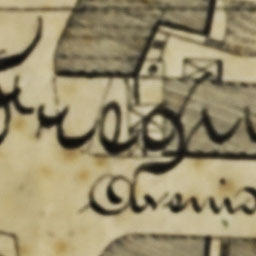 Fregu
Avenid